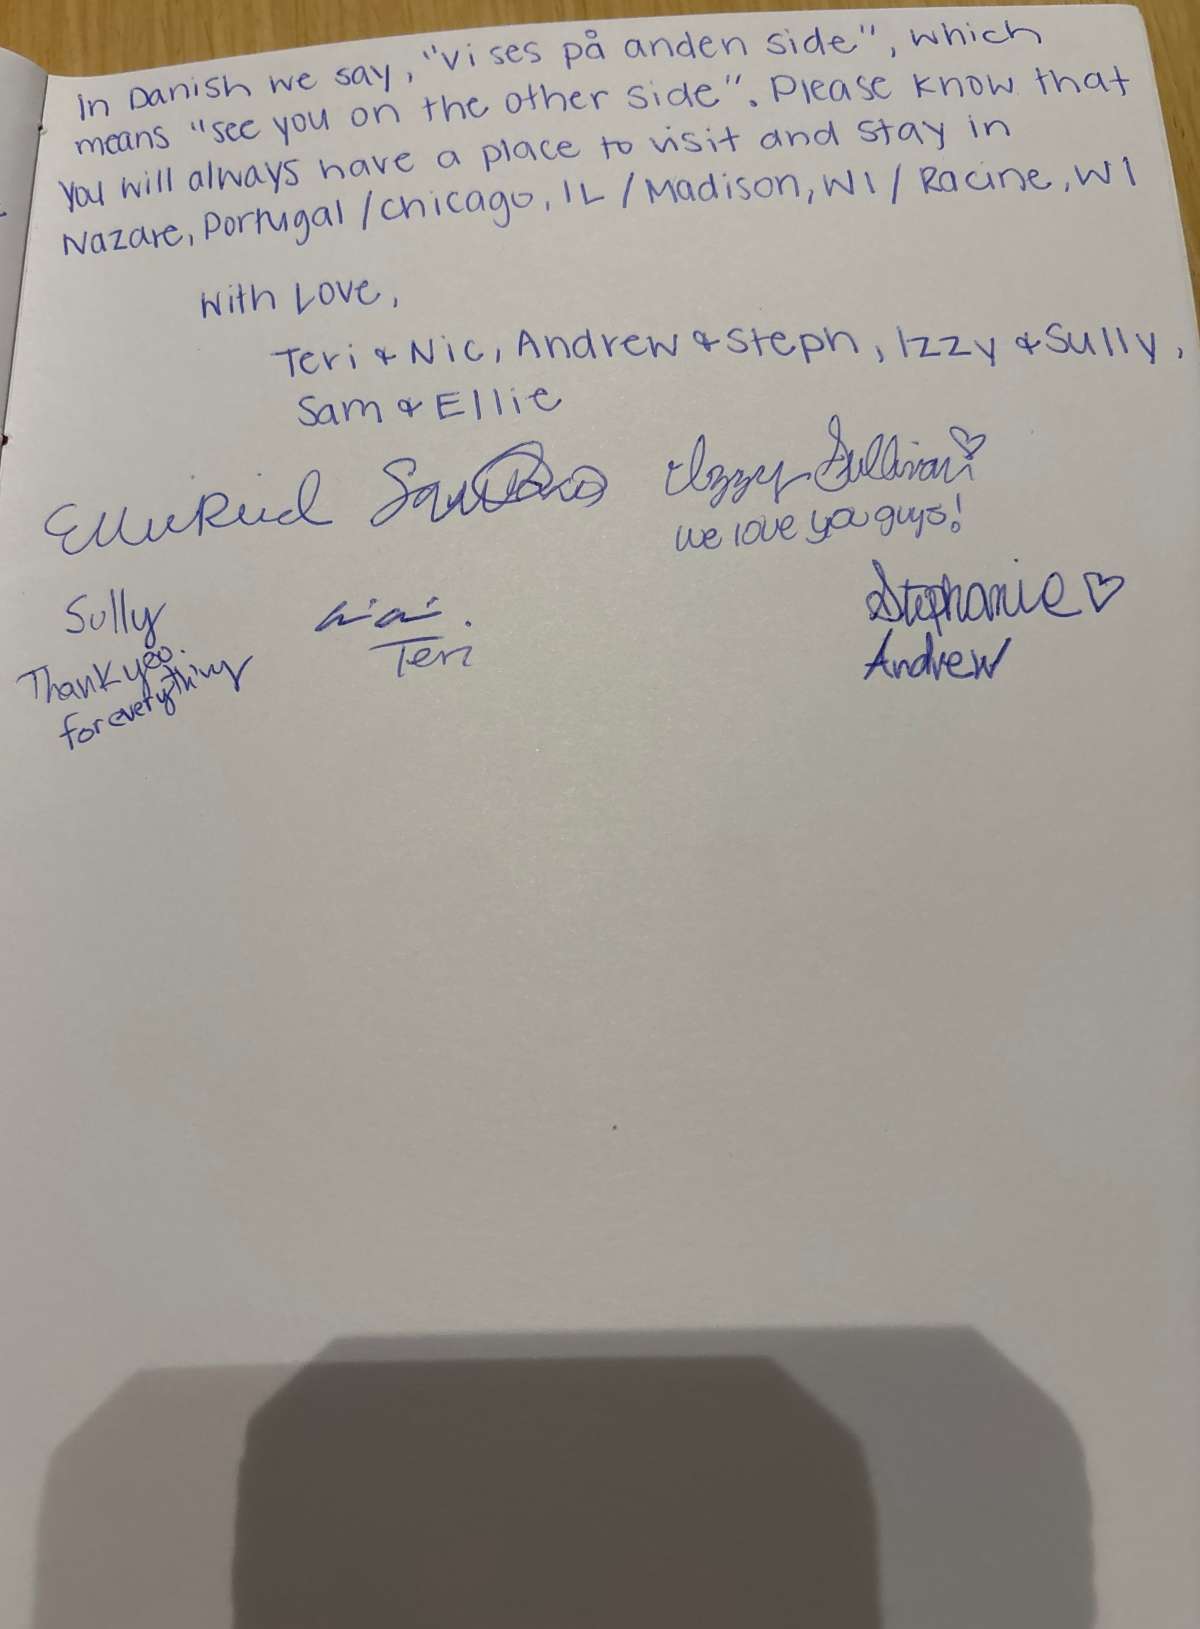 In Danish we say, "vi ses på anden side", which
means "see you on the other side". Please know that
you will always have a place to visit and stay in
Nazare, Portugal / Chicago, IL / Madison, WI / Racine, WI
With Love,
Teri & Nic, Andrew & Steph, Izzy & Sully,
Sam & Ellie
Izzy Sullivan
we love you guys!
Sully
Thank you
for everything
Teri
Stephanie ♡
Andrew